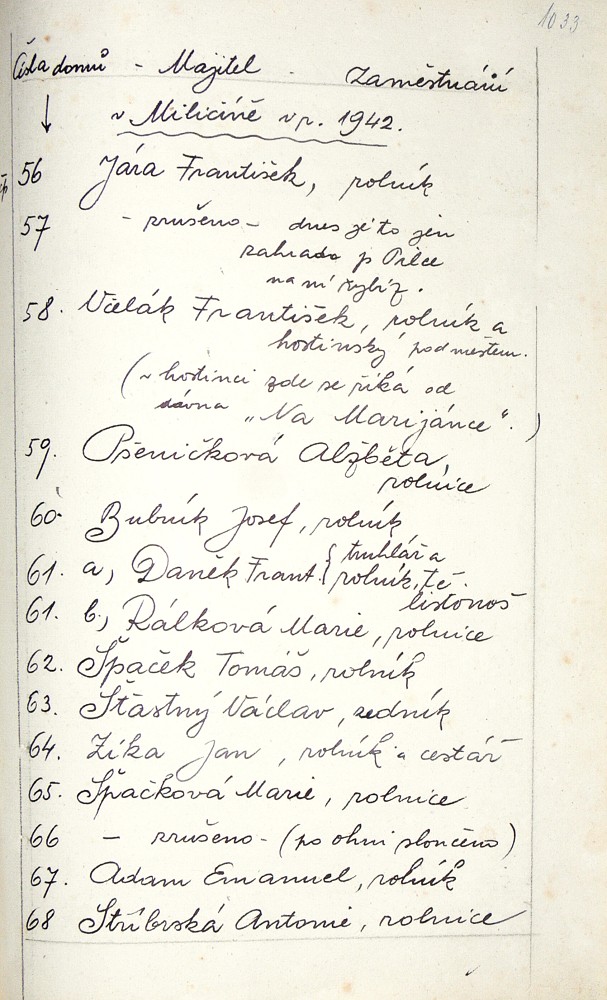 1033
Čísla domů - Majitel - Zaměstnání
v Miličíně v r. 1942.
56 Jára František, rolník
57 - zrušeno - dnes je to jen
zahrada p.
58. Válák František, rolník a
hostinský pod městem.
(v hostinci zde se říká od
dávna „Na Marijánce“.)
59. Pšeničková Alžběta,
rolnice
60. Bubník Josef, rolník
61. a, Daněk Frant. { truhlář a
rolník, tč.
listonoš
61. b, Rálková Marie, rolnice
62. Špaček Tomáš, rolník
63. Šťastný Václav, zedník
64. Zíka Jan, rolník a cestář
65. Špačková Marie, rolnice
66 - zrušeno - (po ohni sloučeno)
67. Adam Emanuel, rolník
68 Stříbrská Antonie, rolnice